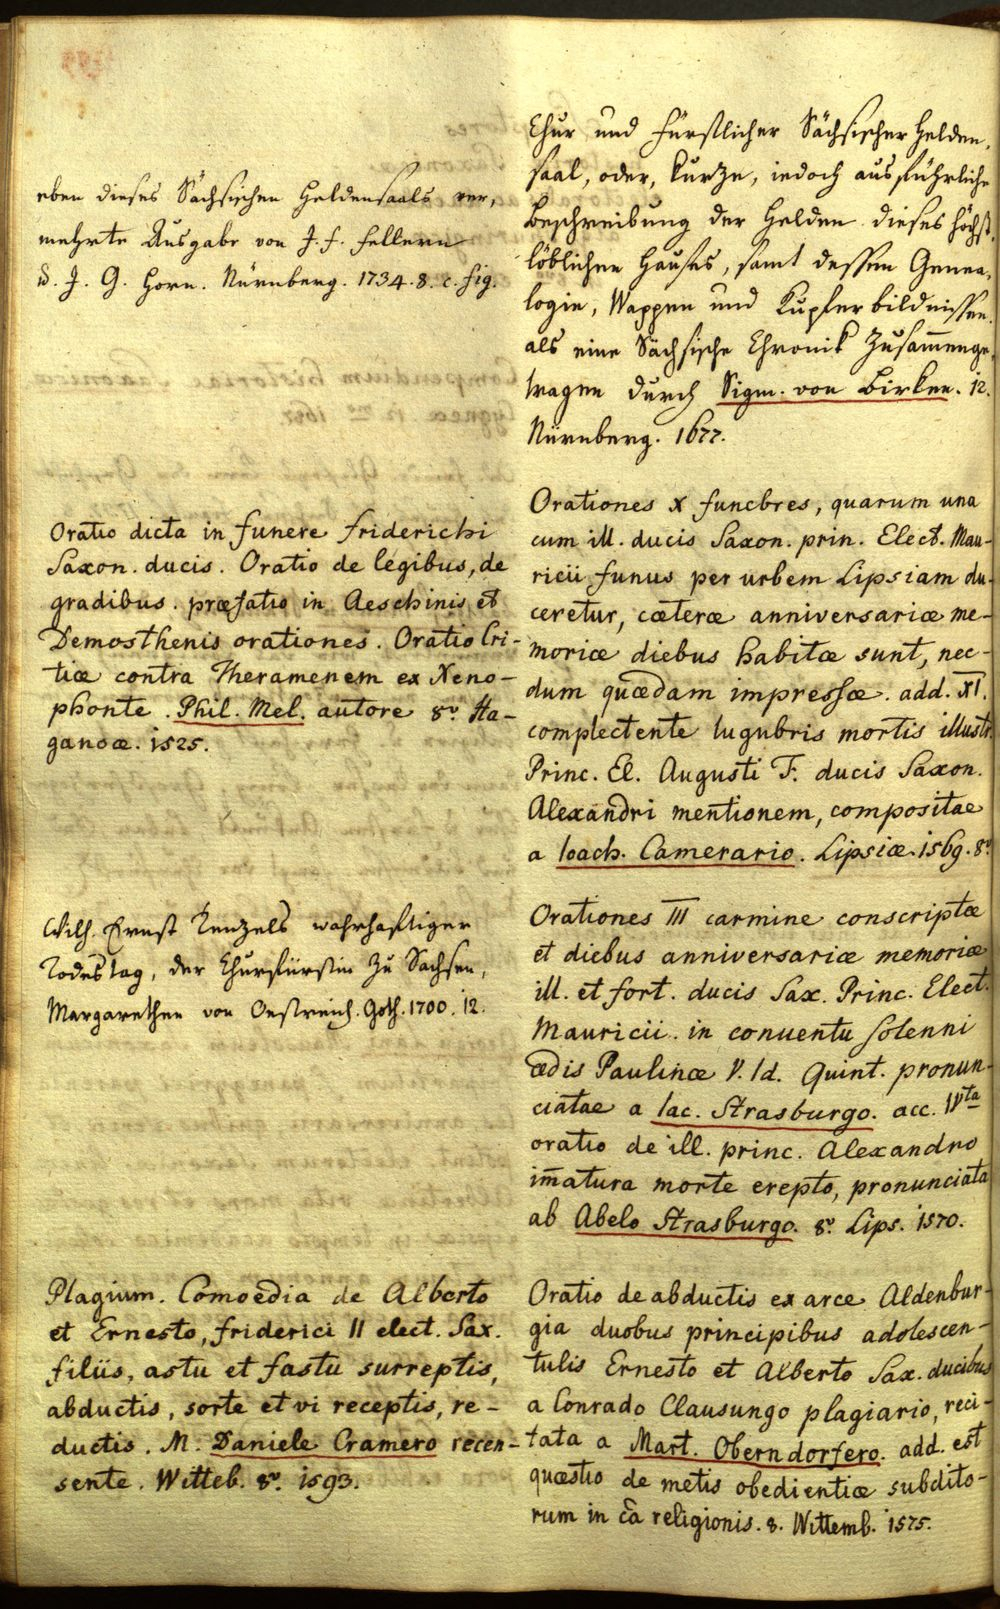 eben dieses Sächsischen Heldensaals ver,
mehrte Ausgabe von J. F. Fellern
u. J. G. Horn. Nürnberg. 1734. 8. c. fig.
Oratio dicta in funere Friderichi
Saxon. ducis. Oratio de legibus, de
gradibus. præfatio in Aeschinis et
Demosthenis orationes. Oratio Cri-
tiæ contra Theramenem ex Xeno-
phonte. Phil. Mel. autore 8º. Ha-
ganoæ. 1525.
Wilh. Ernst Tenzels wahrhafftiger
Todestag, der Churfürstin zu Sachsen,
Margarethen von Oestreich. Goth. 1700. 12.
Plagium. Comoedia de Alberto
et Ernesto, Friderici II elect. Sax.
filiis, astu et fastu surreptis,
abductis, sorte et vi receptis, re-
ductis. M. Daniele Cramero recen-
sente. Witteb. 8º. 1593.
Chur und Fürstlicher Sächsischer Helden,
saal, oder, kurze, iedoch ausführliche
Beschreibung der Helden dieses höchst,
löblichen Hauses, samt dessen Genea,
logie, Wappen und Kupferbildnissen.
als eine Sächsische Chronik zusam̅enge,
tragen durch Sigm. von Birken. 12.
Nürnberg. 1677.
Orationes X funebres, quarum una
cum ill. ducis Saxon. prin. Elect. Mau-
ricii funus per urbem Lipsiam du-
ceretur, cæteræ anniversariæ me-
moriæ diebus habitæ sunt, nec-
dum quædam impressæ. add. XI.
complectente lugubris mortis illustr.
Princ. El. Augusti F. ducis Saxon.
Alexandri mentionem, compositae
a Ioach. Camerario. Lipsiæ. 1569. 8º.
Orationes III carmine conscriptæ
et diebus anniversariæ memoriæ
ill. et fort. ducis Sax. Princ. Elect.
Mauricii in conuentu solenni
ædis Paulinæ V. Id. Quint. pronun-
ciatae a Iac. Strasburgo. acc. IVta
oratio de ill. princ. Alexandro
im̅atura morte erepto, pronunciata
ab Abelo Strasburgo. 8º. Lips. 1570.
Oratio de abductis ex arce Aldenbur-
gia duobus principibus adolescen-
tulis Ernesto et Alberto Sax. ducibus
a Conrado Clausungo plagiario, reci-
tata a Mart. Oberndorfero. add. est
quæstio de metis obedientiæ subdito-
rum in c̅a religionis. 8. Wittemb. 1575.